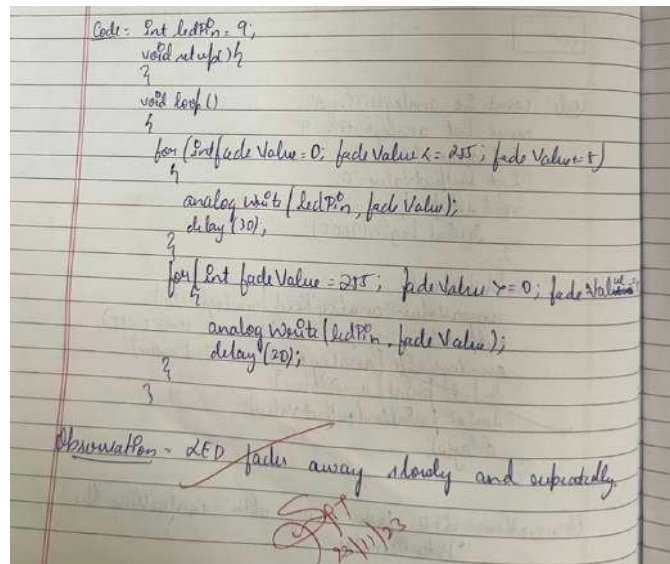 Code:- int ledPin = 9;
void setup() {
}
void loop()
{
for (int fadeValue = 0; fadeValue <= 255; fadeValue += 5)
{
analog Write (ledPin, fadeValue);
delay (30);
}
for (int fadeValue = 255; fadeValue >= 0; fadeValue
{
analog Write (ledPin, fadeValue);
delay (30);
}
}
Observation - LED fades away slowly and repeatedly.
23/11/23